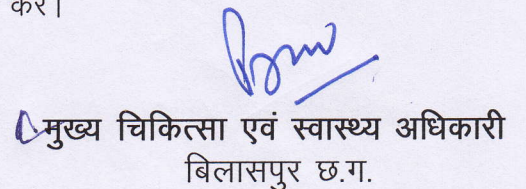 करें।
मुख्य चिकित्सा एवं स्वास्थ्य अधिकारी
बिलासपुर छ.ग.